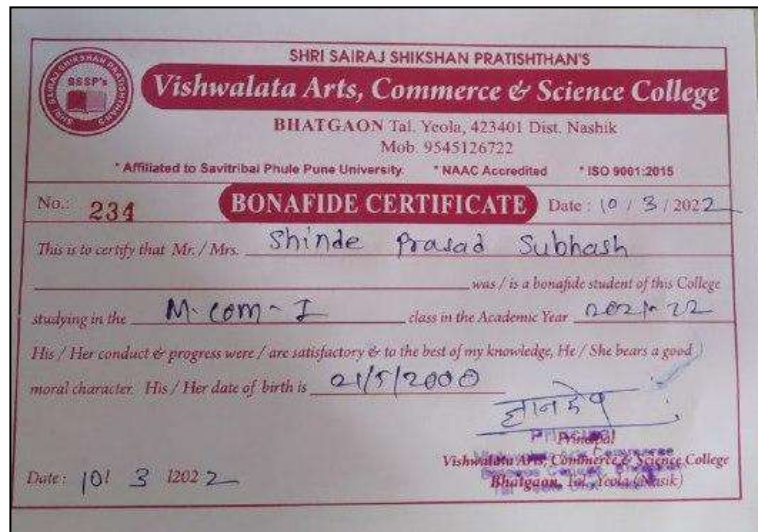 SHRI SAIRAJ SHIKSHAN PRATISHTHAN'S
SSSP's
Vishwalata Arts, Commerce & Science College
BHATGAON Tal. Yeola, 423401 Dist. Nashik
Mob. 9545126722
* Affiliated to Savitribai Phule Pune University. * NAAC Accredited * ISO 9001:2015
No.: 234 BONAFIDE CERTIFICATE Date : 10 / 3 / 2022
This is to certify that Mr. / Mrs. Shinde Prasad Subhash
was / is a bonafide student of this College
studying in the M-com-I class in the Academic Year 2021-22
His / Her conduct & progress were / are satisfactory & to the best of my knowledge, He / She bears a good
moral character. His / Her date of birth is 21/5/2000
Principal
Vishwalata Arts, Commerce & Science College
Date : 10/ 3 /2022 Bhatgaon, Tal. Yeola (Nasik)